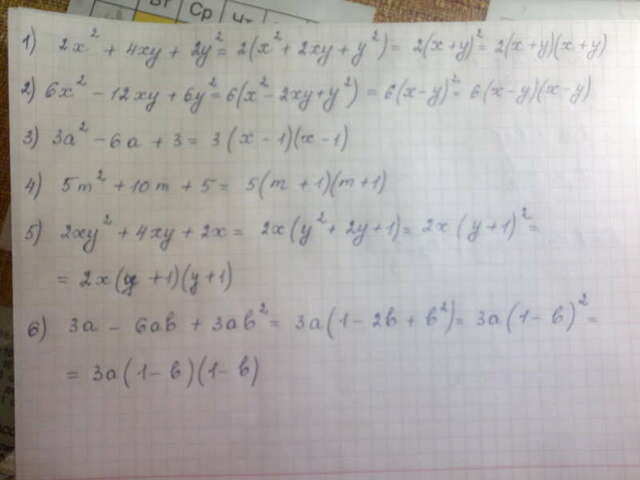 Вт Ср Чт
1) 2x² + 4xy + 2y² = 2(x² + 2xy + y²) = 2(x+y)² = 2(x+y)(x+y)
2) 6x² - 12xy + 6y² = 6(x² - 2xy + y²) = 6(x-y)² = 6(x-y)(x-y)
3) 3a² - 6a + 3 = 3(x-1)(x-1)
4) 5m² + 10m + 5 = 5(m+1)(m+1)
5) 2xy² + 4xy + 2x = 2x(y² + 2y + 1) = 2x(y+1)² =
= 2x(y+1)(y+1)
6) 3a - 6ab + 3ab² = 3a(1 - 2b + b²) = 3a(1-b)² =
= 3a(1-b)(1-b)